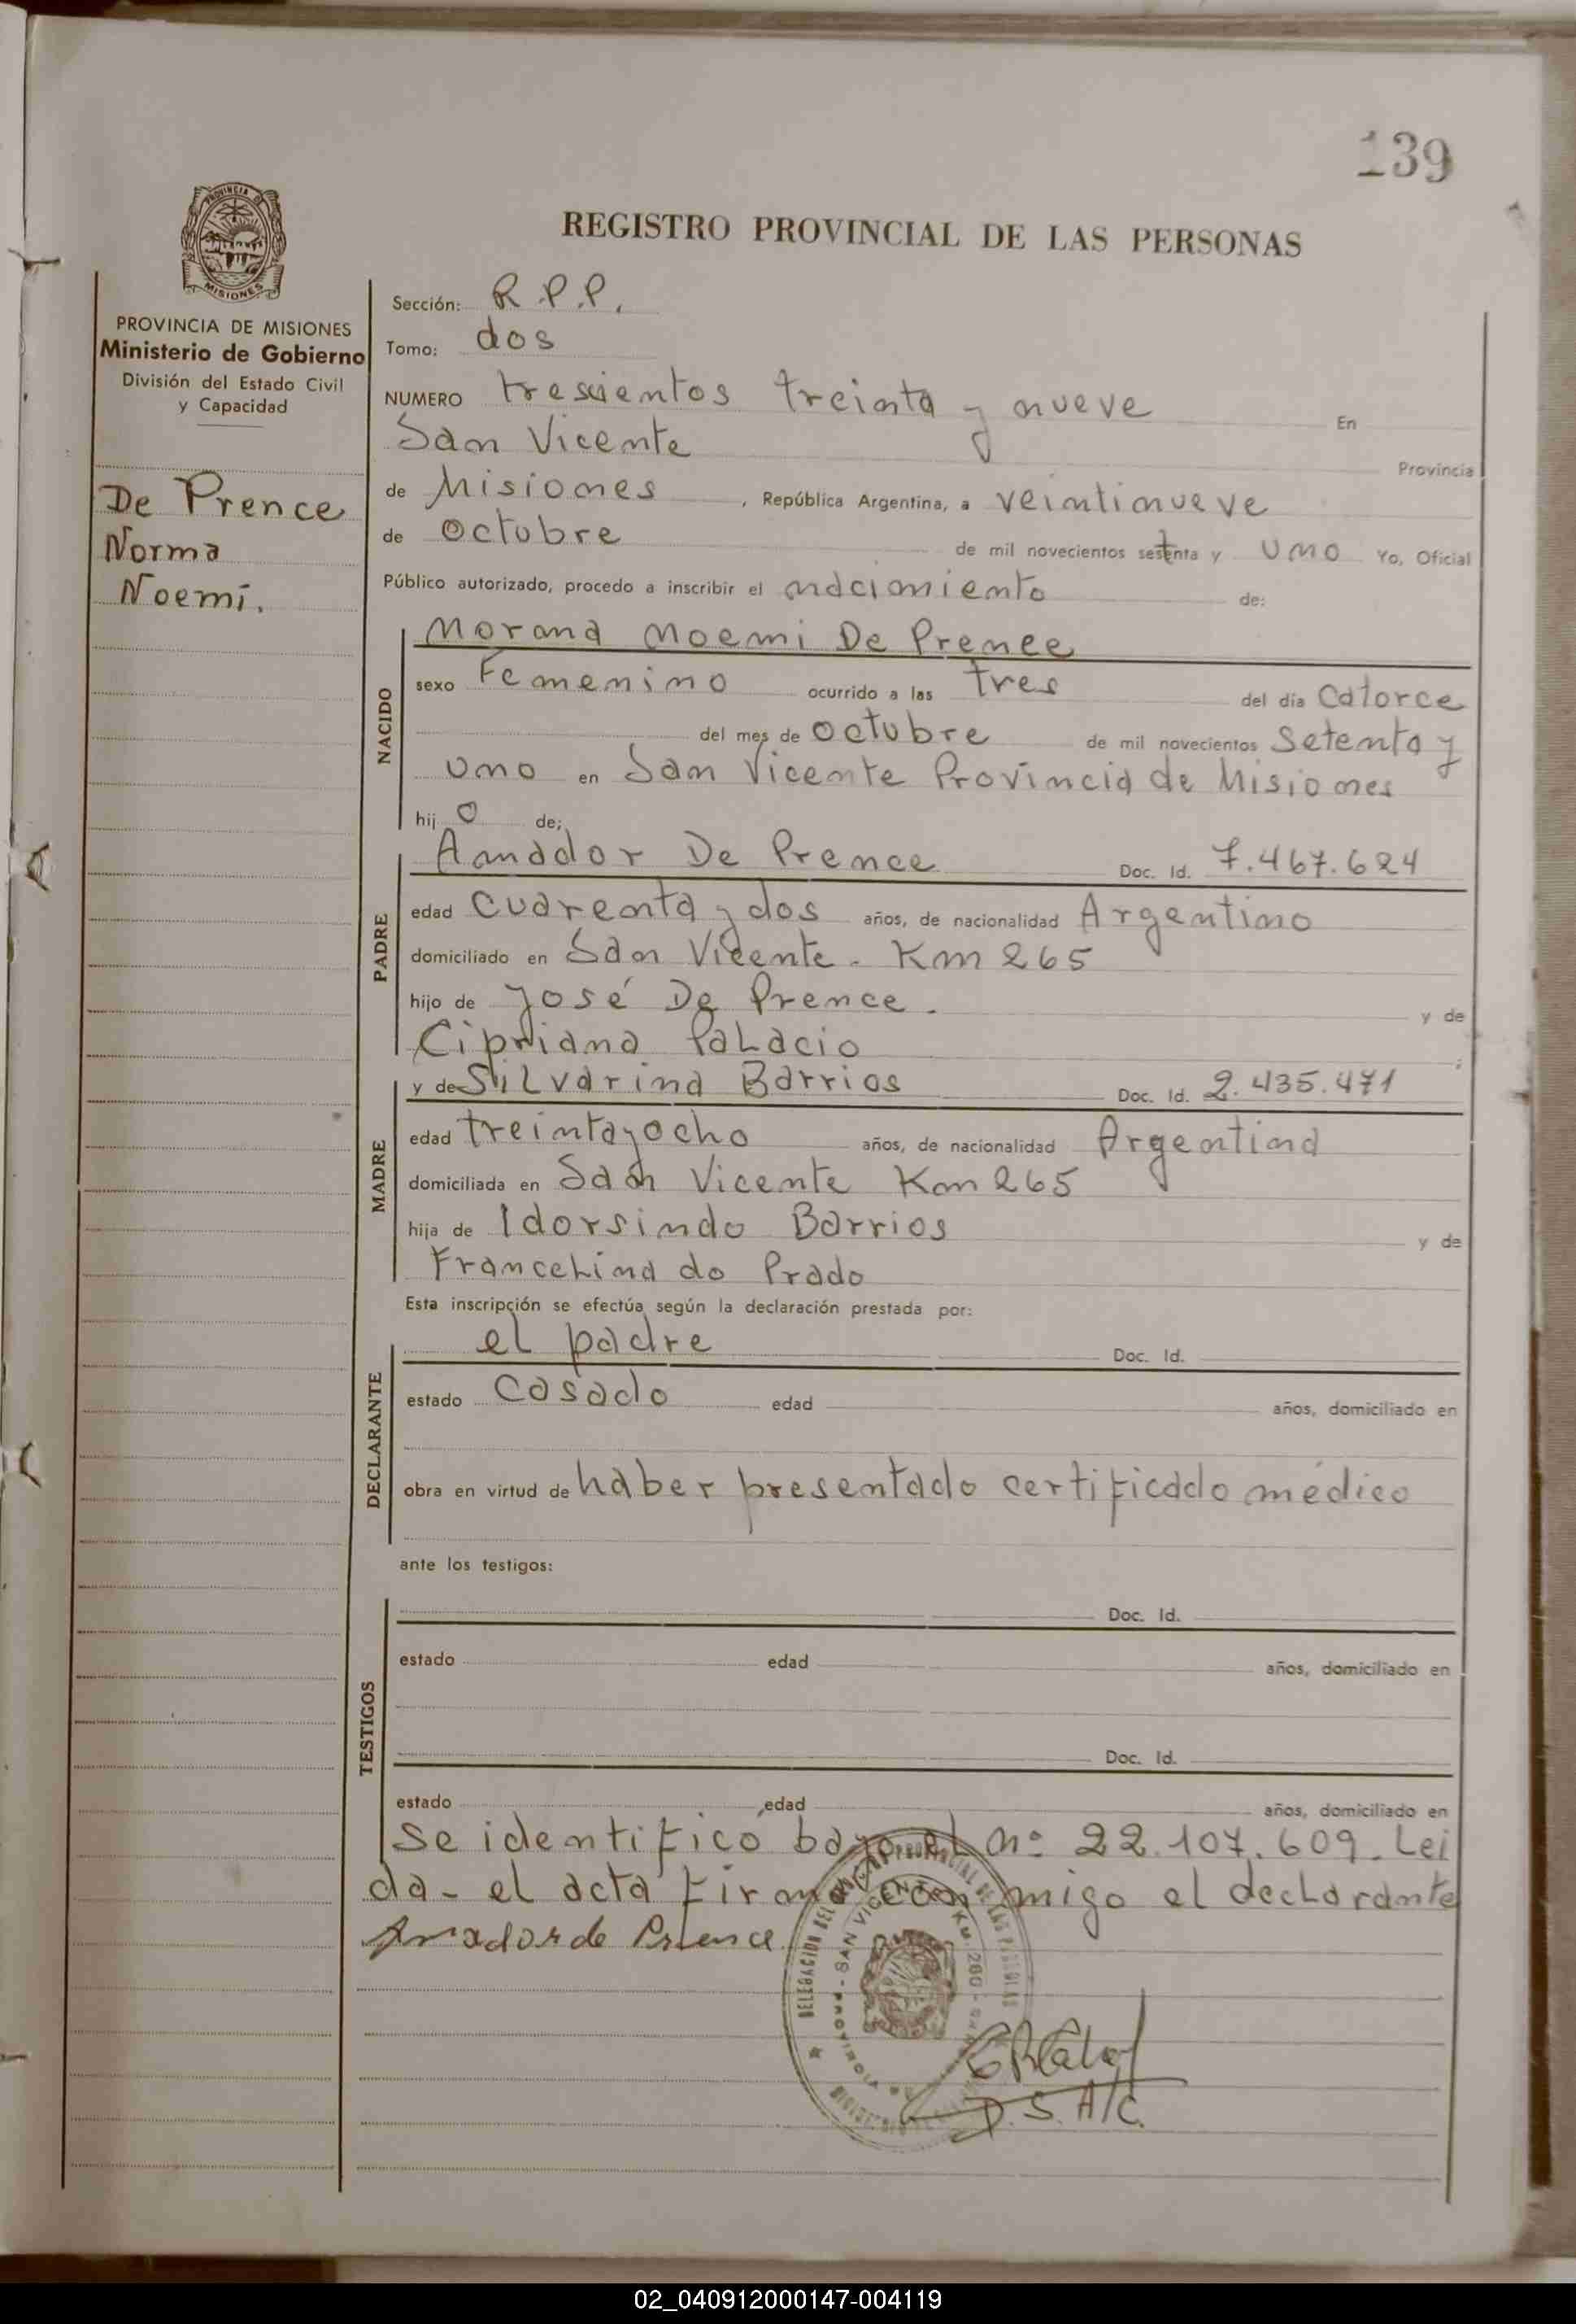 139
REGISTRO PROVINCIAL DE LAS PERSONAS
PROVINCIA DE
MISIONES
PROVINCIA DE MISIONES
Ministerio de Gobierno
División del Estado Civil
y Capacidad
De Prence
Norma
Noemí.
Sección: R.P.P.
Tomo: dos
NUMERO trescientos treinta y nueve En
San Vicente Provincia
de Misiones, República Argentina, a veintinueve
de octubre de mil novecientos setenta y uno Yo, Oficial
Público autorizado, procedo a inscribir el nacimiento de:
NACIDO
Morana Noemi De Prence
sexo Femenino ocurrido a las tres del día catorce
del mes de octubre de mil novecientos setenta y
uno en San Vicente Provincia de Misiones
hij o de;
PADRE
Amador De Prence Doc. Id. 7.467.624
edad cuarenta y dos años, de nacionalidad Argentino
domiciliado en San Vicente. Km 265
hijo de José De Prence. y de
Cipriana Palacio ;
MADRE
y de Silvarina Barrios Doc. Id. 2.435.471
edad treinta y ocho años, de nacionalidad Argentina
domiciliada en San Vicente Km 265
hija de Idorsindo Barrios y de
Francelina do Prado
Esta inscripción se efectúa según la declaración prestada por:
DECLARANTE
el padre Doc. Id.
estado casado edad años, domiciliado en
obra en virtud de haber presentado certificado médico
ante los testigos:
TESTIGOS
Doc. Id.
estado edad años, domiciliado en
Doc. Id.
estado edad años, domiciliado en
se identificó bajo el nº 22.107.609. Lei
da - el acta firma conmigo el declarante
Amador de Prence
DELEGACION DEL REGISTRO PROVINCIAL DE LAS PERSONAS
SAN VICENTE - KM. 260
D.S. A/C.
02_040912000147-004119